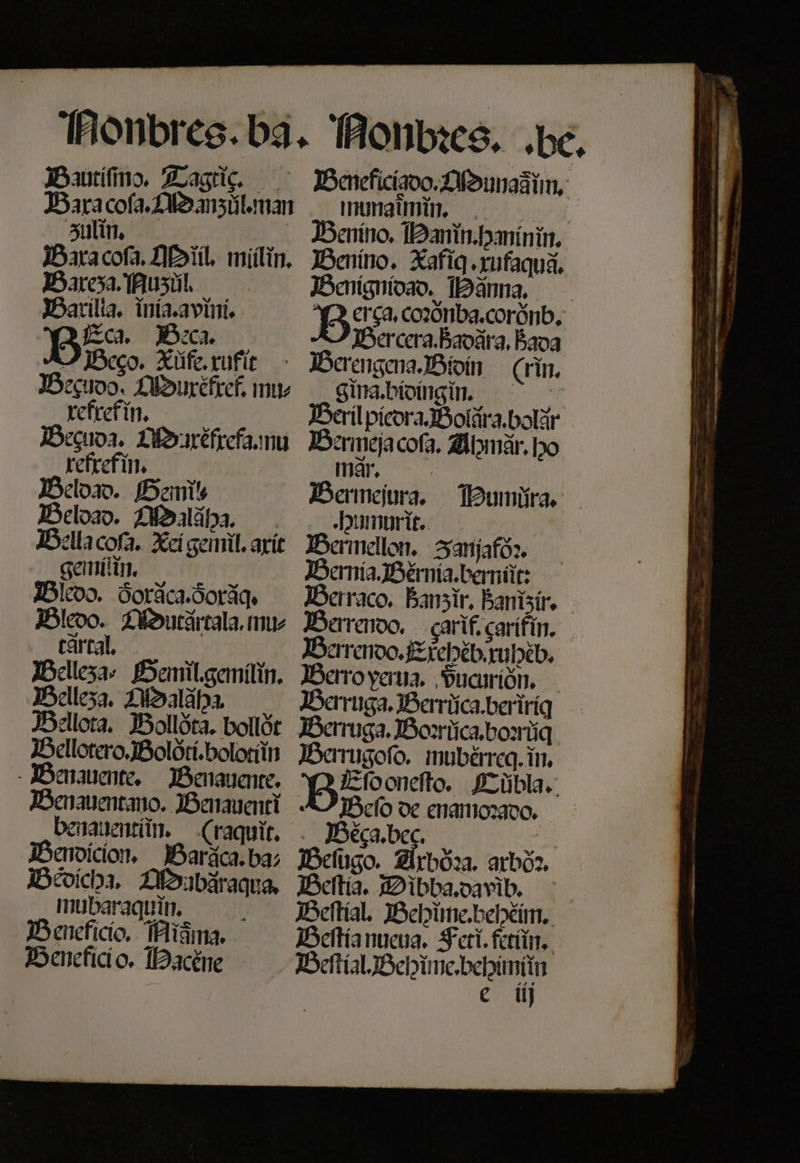 Nonbres. ba.
Bautismo. Tagtiç.
Bara cosa. Mansúb. man
zulin.
Bara cosa. Miil. miilin.
Bareza. Nuzúl.
Barilla. inía. aviní.
BEca. Beca.
Beço. Xúfe. xufit
Beçudo. Muxéfxef. mu-
xefxefin.
Beçuda. Muxéfxefa. mu
xefxefin.
Beldad. Gemil
Beldad. Maláha.
Bella cosa. Xei gemil. axit
gemilin.
Bledo. Dordca. dordq.
Bledo. Mutártala. mu-
tártal.
Belleza. Gemil. gemilin.
Belleza. Maláha.
Bellota. Bollóta. bollót
Bellotero. Bolóti. bolotiin
Benauente. Benauente.
Benauentano. Benauenti
benauentiin. (raquit.
Bendicion. Baráca. ba-
Bédicha. Mubáraqua.
mubaraquin.
Beneficio. Niáma.
Beneficio. Hacéne
Nonbres. .be.
Beneficiado. Munaâim.
munaimin.
Benino. Hanin. haninin.
Benino. Xafiq. xufaquá.
Benignidad. Hánna.
BErça. corónba. corónb.
Bercera. Hadára. Hada
Berengena. Bidin (rin.
gina. bidingin.
Beril picdra. Bolára. bolár
Bermeja cosa. Ahmár. ho
már.
Bermejura. Humúra.
humurit.
Bermellon. Zanjafór.
Bernia. Bérnia. berniit:
Berraco. Hanzir. Hanizir.
Berrendo. çarif. çarifin.
Berrendo. Exehéb. xuhéb.
Berro yerua. Gucurión.
Berruga. Berrúca. beriríq
Berruga. Borrúca. borrúq
Berrugoso. mubérreq. in.
BEso onesto. Cúbla.
Beso de enamorado.
Béça. beç.
Besugo. Arbóra. arbór.
Bestia. Dibba. davib.
Bestial. Behime. behéim.
Bestia nueua. Feti. fetiin.
Bestial. Behime. behimiin
e iij